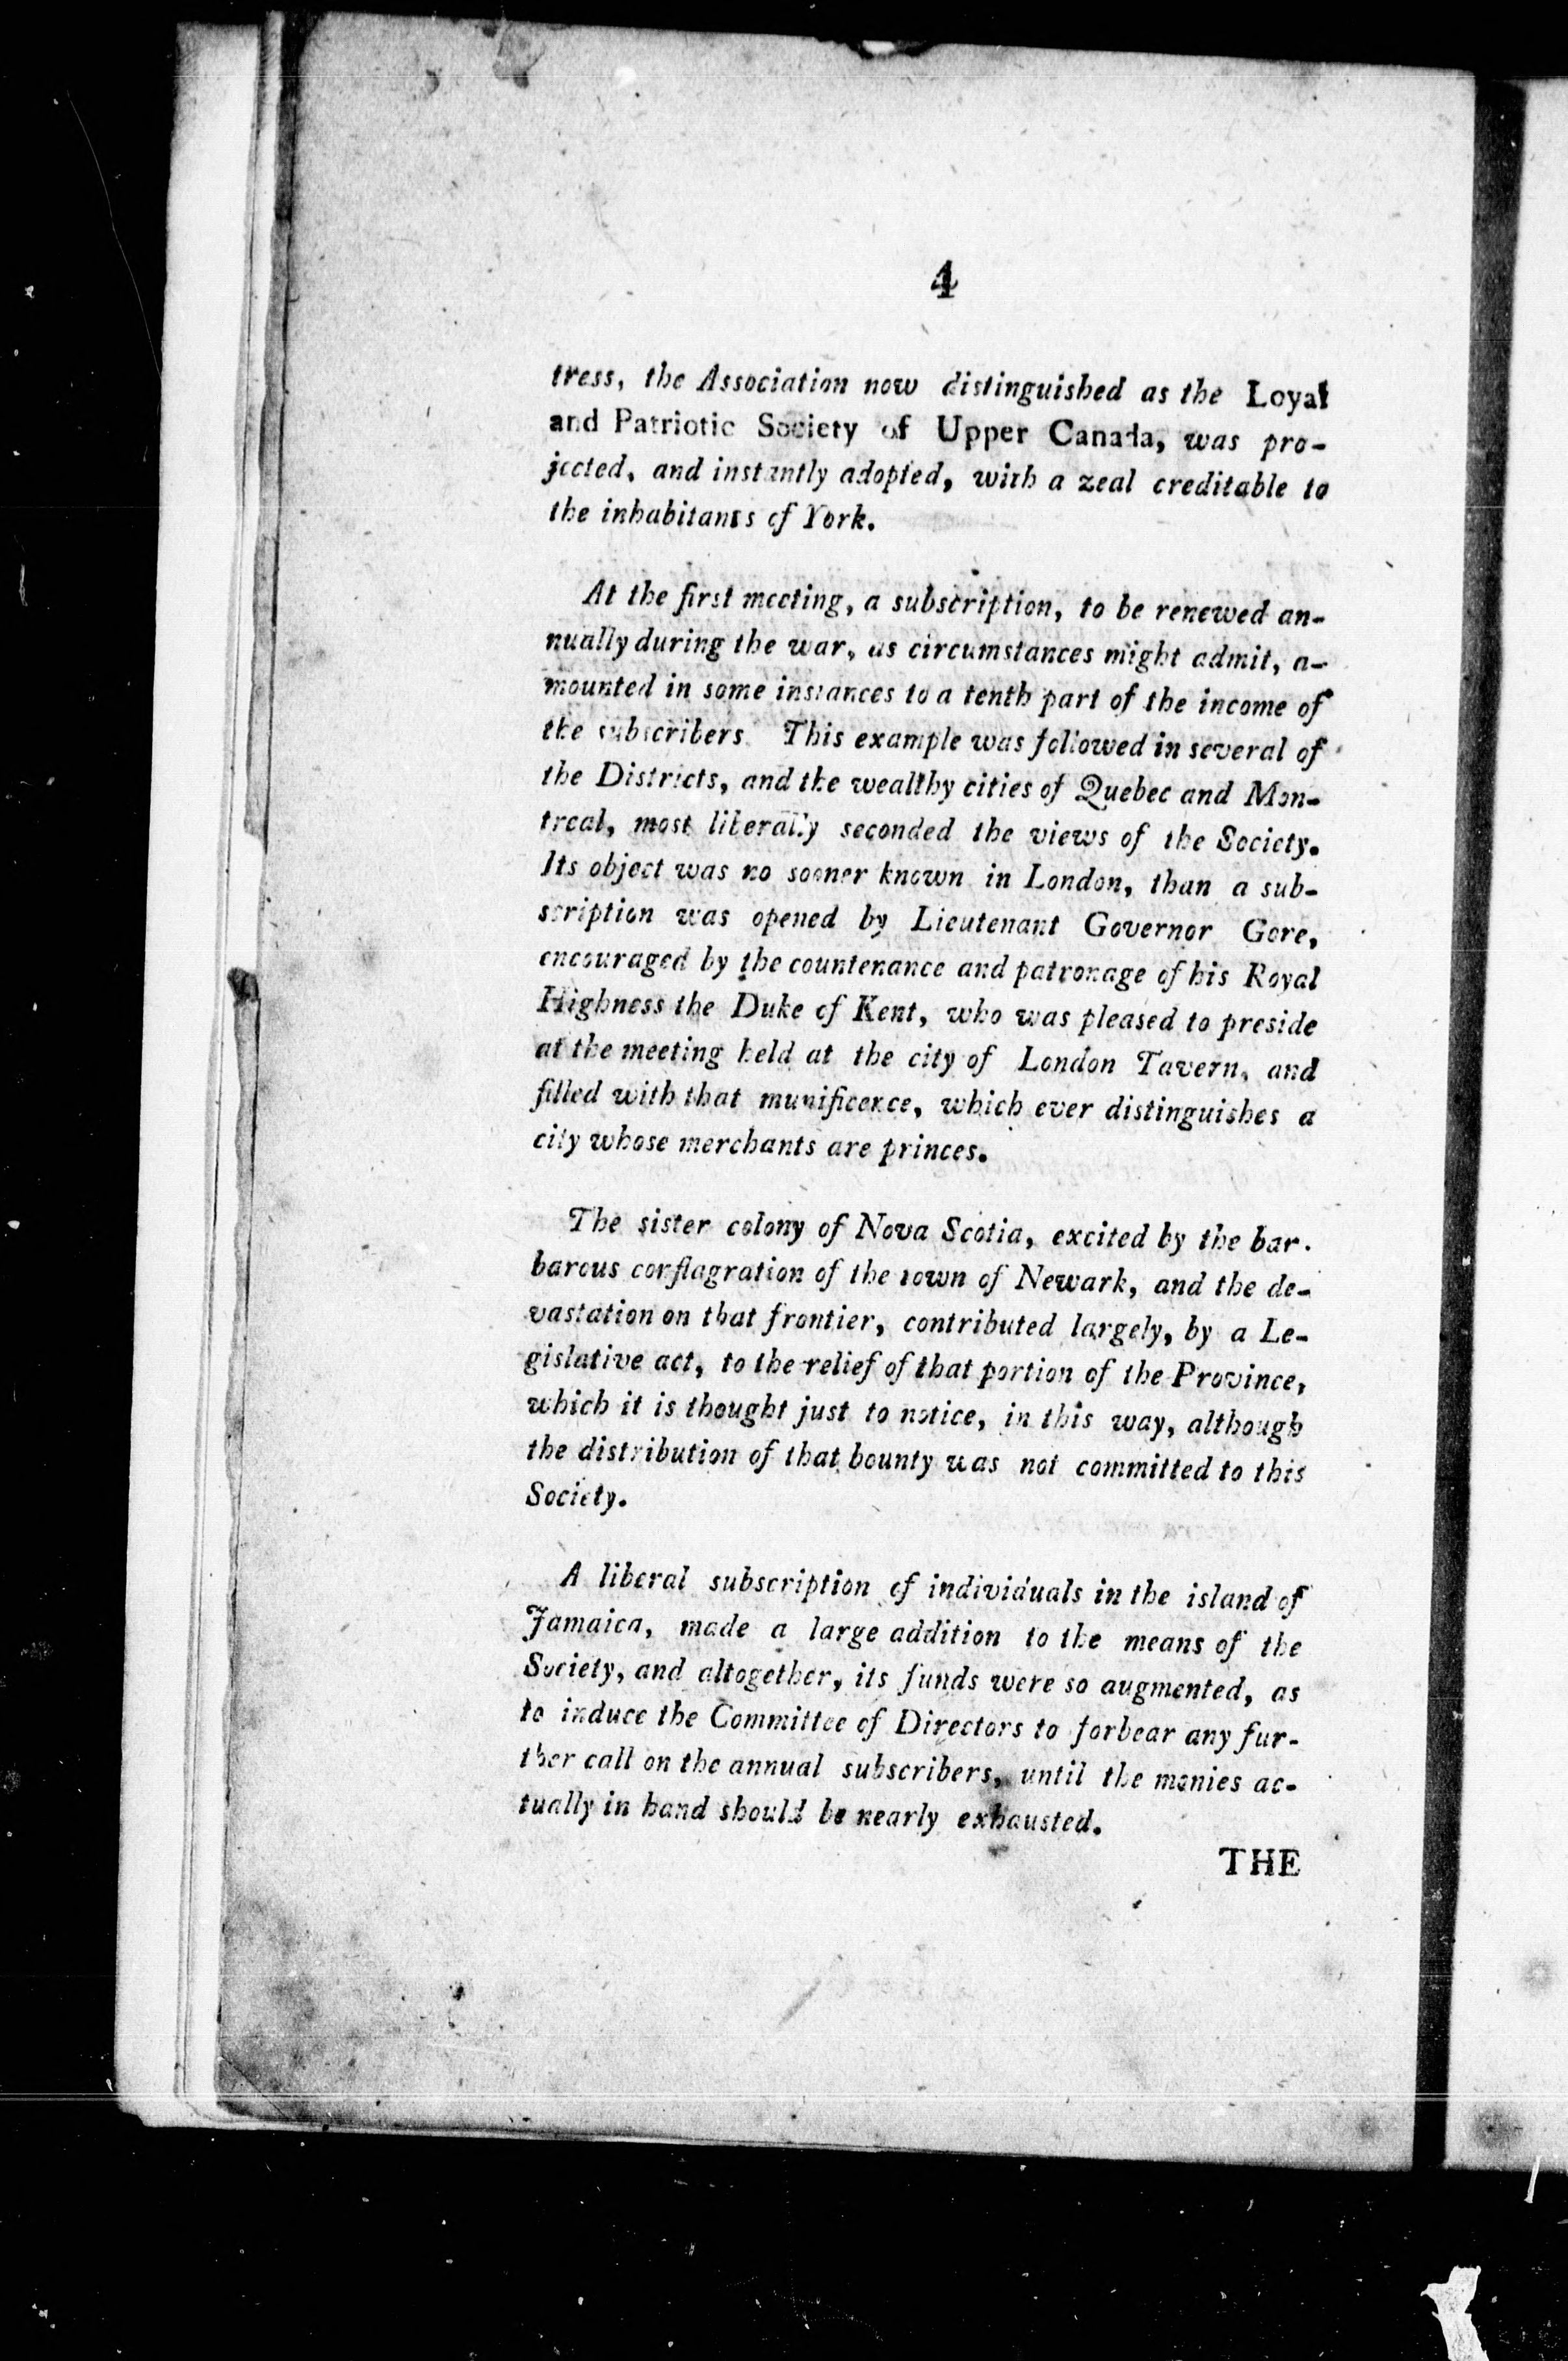 4
tress, the Association now distinguished as the Loyal
and Patriotic Society of Upper Canada, was pro-
jected, and instantly adopted, with a zeal creditable to
the inhabitants of York.
At the first meeting, a subscription, to be renewed an-
nually during the war, as circumstances might admit, a-
mounted in some instances to a tenth part of the income of
the subscribers. This example was followed in several of
the Districts, and the wealthy cities of Quebec and Mon-
treal, most liberally seconded the views of the Society.
Its object was no sooner known in London, than a sub-
scription was opened by Lieutenant Governor Gore,
encouraged by the countenance and patronage of his Royal
Highness the Duke of Kent, who was pleased to preside
at the meeting held at the city of London Tavern, and
filled with that munificence, which ever distinguishes a
city whose merchants are princes.
The sister colony of Nova Scotia, excited by the bar-
barous conflagration of the town of Newark, and the de-
vastation on that frontier, contributed largely, by a Le-
gislative act, to the relief of that portion of the Province,
which it is thought just to notice, in this way, although
the distribution of that bounty was not committed to this
Society.
A liberal subscription of individuals in the island of
Jamaica, made a large addition to the means of the
Society, and altogether, its funds were so augmented, as
to induce the Committee of Directors to forbear any fur-
ther call on the annual subscribers, until the monies ac-
tually in hand should be nearly exhausted.
THE